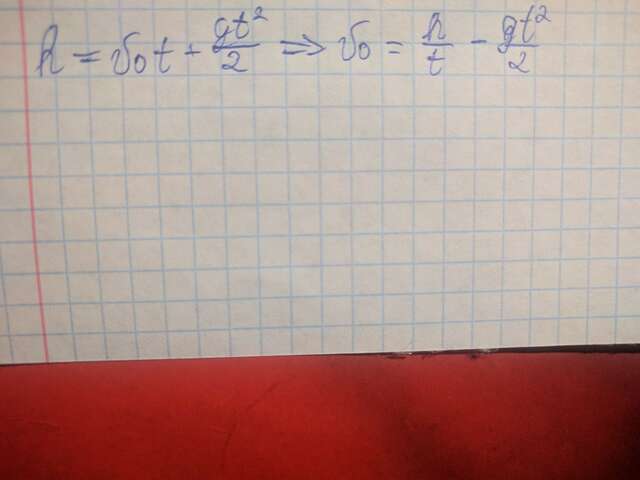 h = v₀t + gt²/2 ⇒ v₀ = h/t - gt²/2